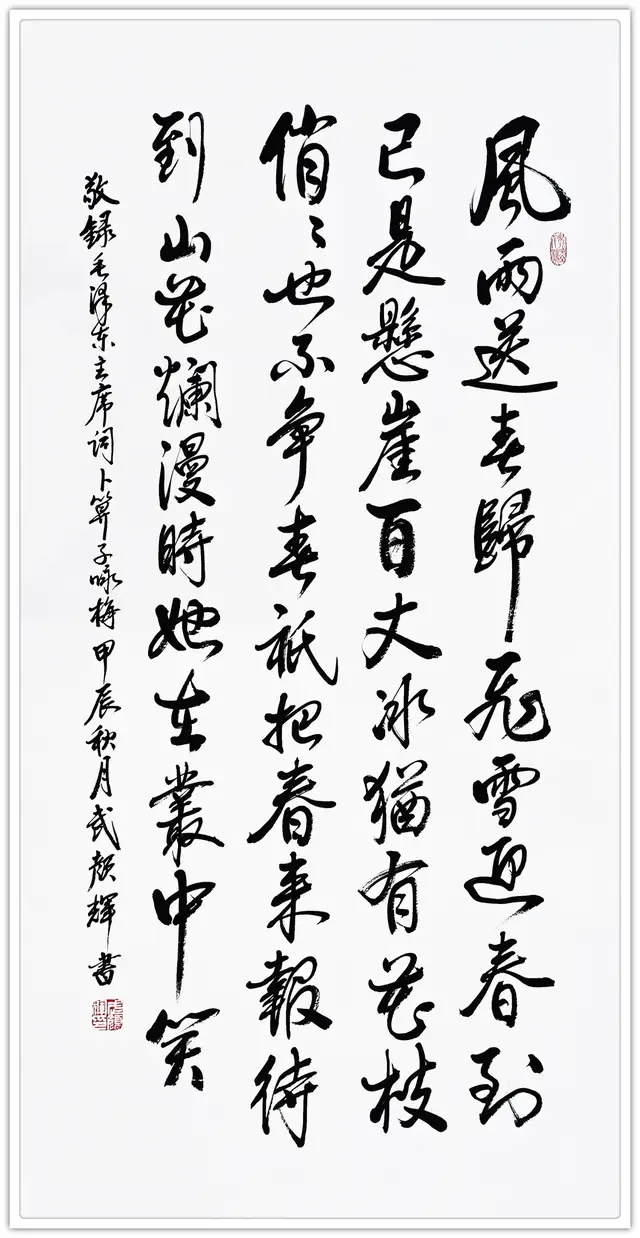 風雨送春歸飛雪迎春到
已是懸崖百丈冰猶有花枝
俏〻也不争春祇把春来報待
到山花爛漫時她在叢中笑
敬録毛泽东主席词卜算子咏梅甲辰秋月武颜輝書